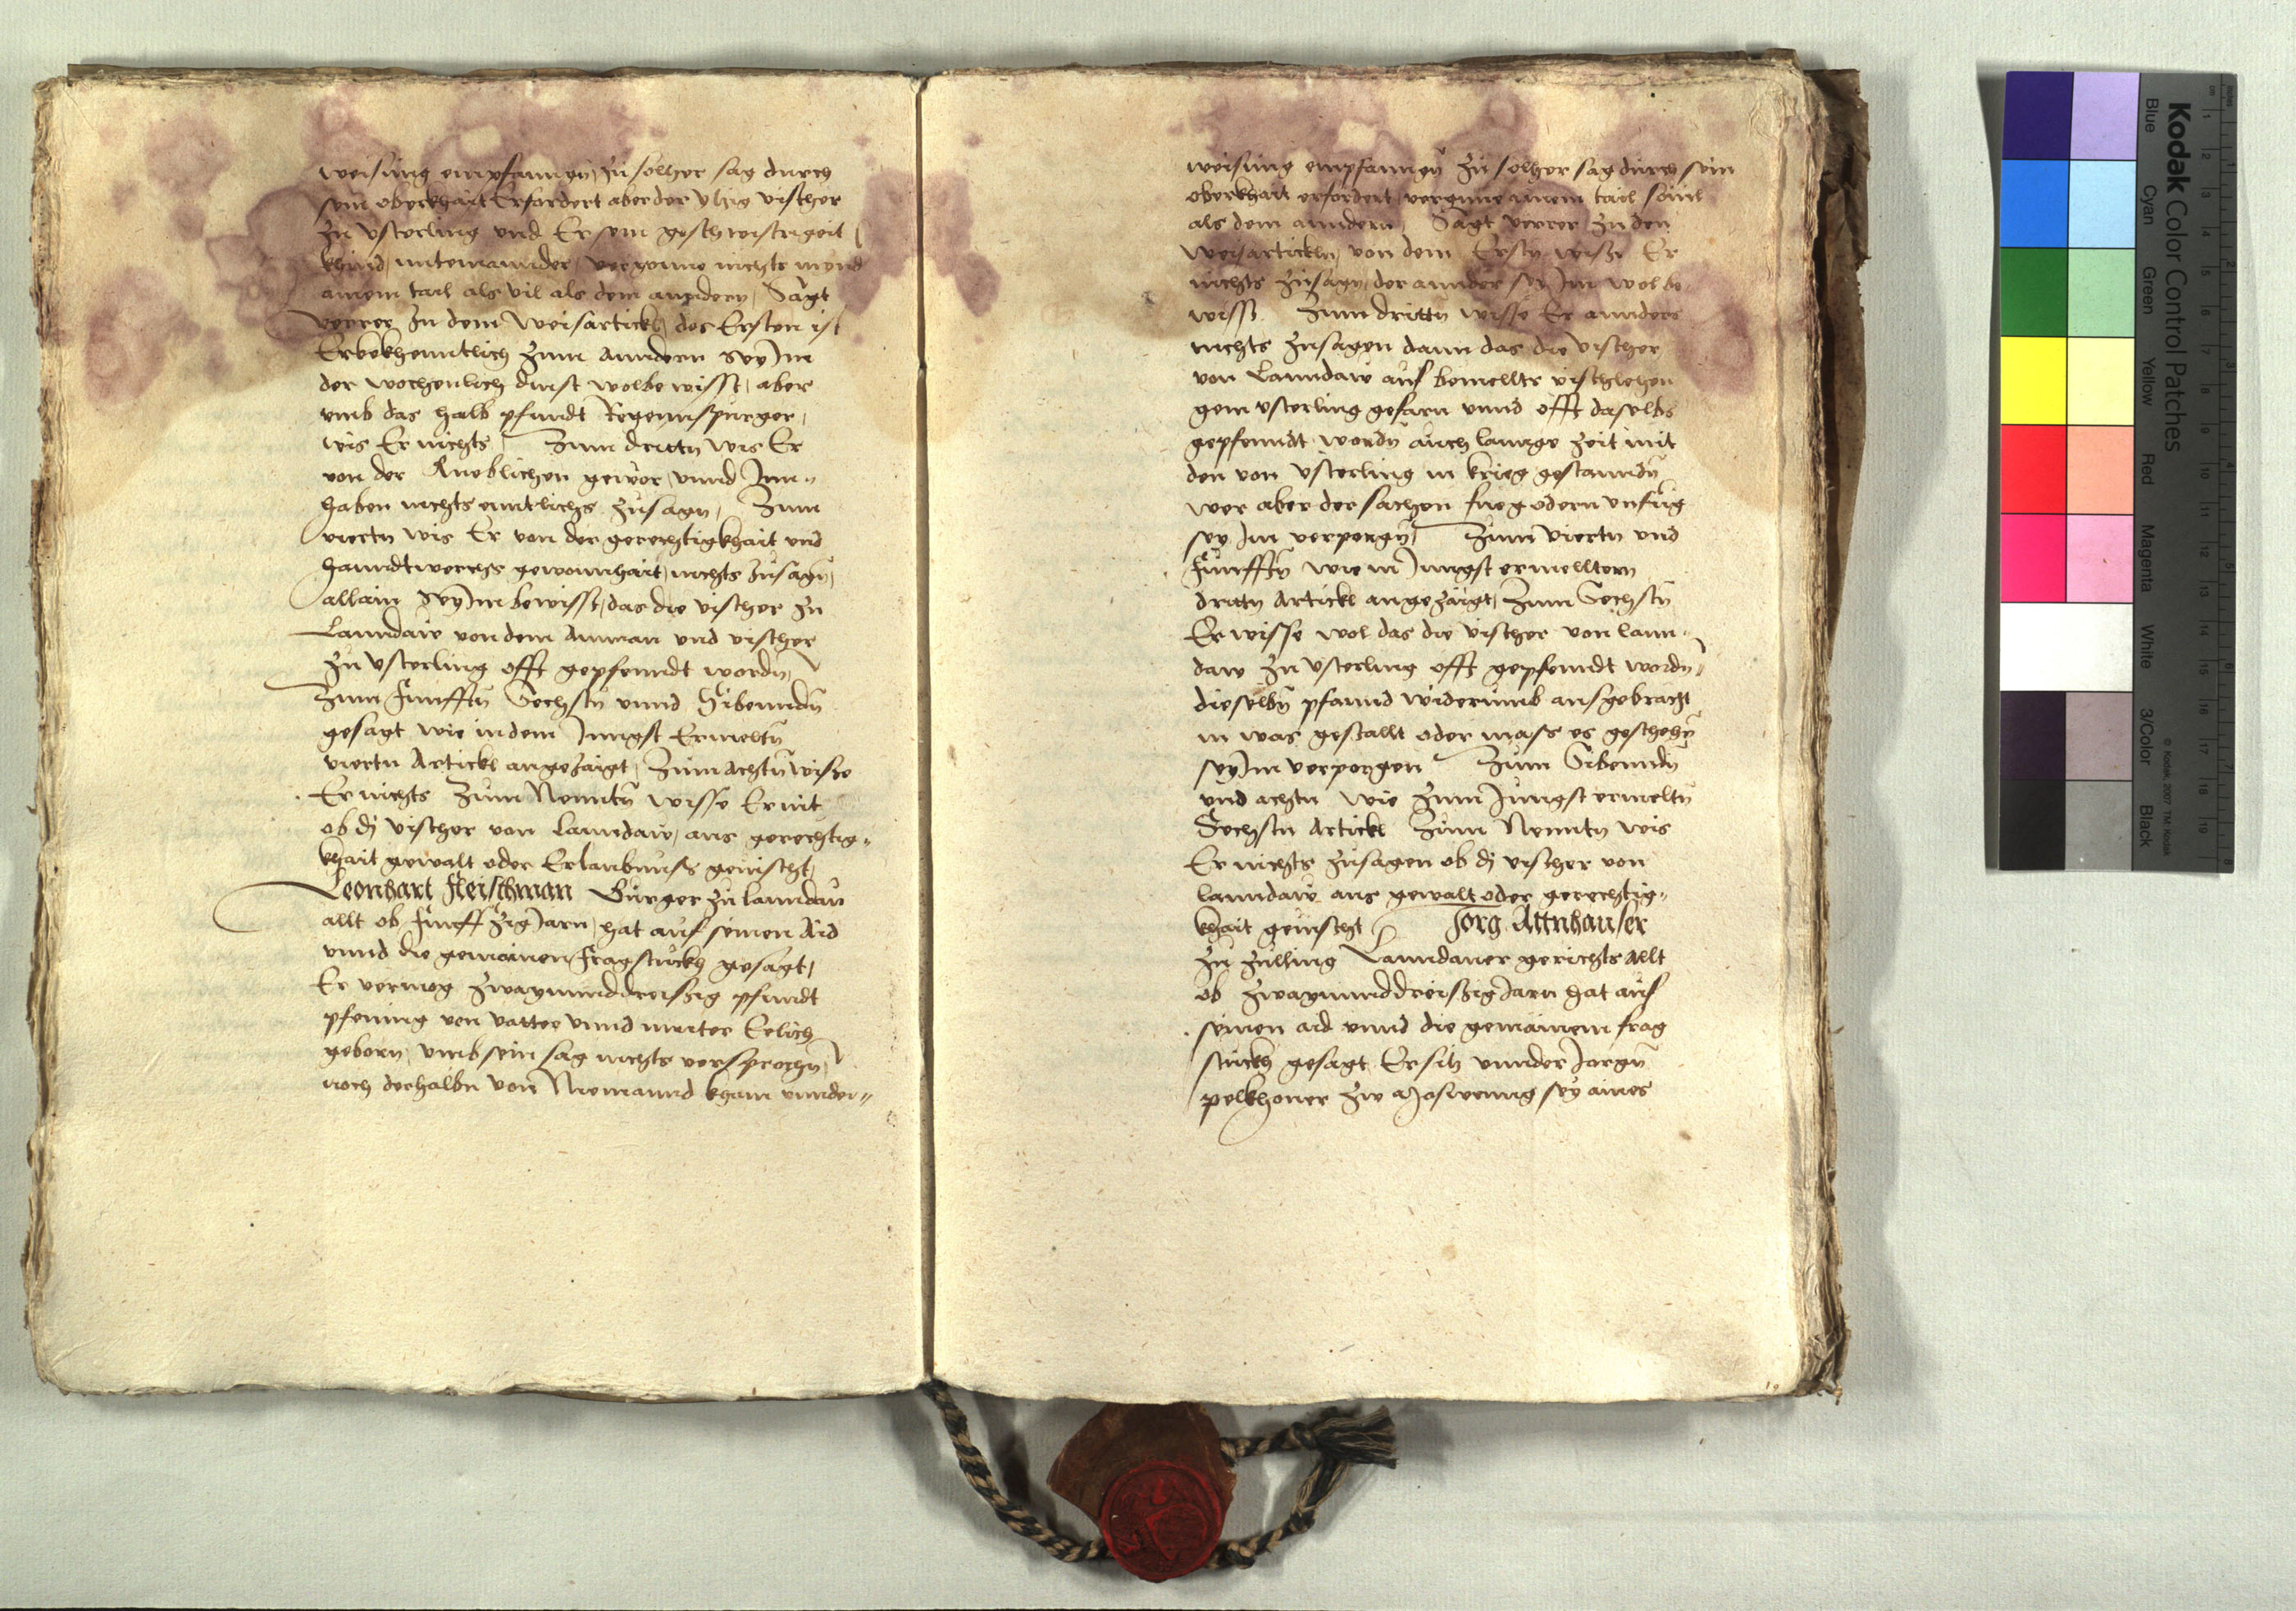 weisung empfanngen, zu solher sag durch
sein oberkhait Erfordert aber der yhig vischer
zu Vsterling vnd Er sein geschwistrigeit
khind, miteinannder, vergonne nichts
ainem tail als vil als dem anndern, Sagt
verrer zu dem Weisartickl, des Ersten ist
Er bekhenntlich Zum Anndern sey Jm
der wochenlich dinst wol bewisst, aber
vmb das halb pfundt Regennspurger,
wis Er nichts, Zum dritten wis Er
von der Rueblichen gewer, vnnd Jnn-
haben nichts enntlichs zusagn, Zum
viertn wis Er von der gerechtigkhait vnd
hanndtwerchs gewonnhait, nichts zusagn,
allain sey Jm bewisst, das die vischer zu
Lanndaw von dem Amman vnd vischer
zu Vsterling offt gepfenndt wordn,
Zum Funfftn Sechstn vnnd Sibenndn
gesagt wie in dem Jungst Ermeltn
viertn Artickl angezaigt, Zum achtn wisse
Er nichts Zum Nenntn wisse Er nit
ob dj vischer von Lanndaw, aus gerechtig-
khait gewalt oder Erlaubnuss gevischt,
Leonhart Fleischman Burger zu Lanndau
allt ob Funffzig Jarn, hat auf seinen Aid
vnnd die gemainen Fragstuckh gesagt,
Er vermog zwayunnddreissig pfundt
pfening von vatter vnnd mueter Eelich
geborn, vmb sein sag nichts versprochn,
noch derhalbn von Niemannd kham vnnder-
weisung empfanngn zu solher sag durch sein
oberkhait erfordert, vergunne ainem tail souil
als dem anndern, Sagt verrer zu den
Weisartickln, von dem Erstn wisse Er
nichts zusagn, der annder sey Jm wol be-
wisst. Zum drittn wisse Er annders
nichts zusagen dann das die vischer
von Lanndaw auf bemellts vischlehen
gem Vsterling gefarn vnnd offt daselbs
gepfenndt wordn auch lannge zeit mit
den von Vsterling in krieg gestanndn
wer aber der sachen fueg oder vnfueg
sey Jm verporgn, Zum Viertn vnd
Funfftn wie in Jungst ermelltem
drittn Artickl angezaigt, Zum Sechstn
Er wisse wol das die vischer von Lann-
daw zu Vsterling offt gepfenndt wordn,
dieselbn pfannd widerumb ausgebracht
in was gestallt oder mass es geschehn
sey Jm verporgen Zum Sibenndn
vnd achtn wie zum Jungst ermeltn
Sechstn Artickl Zum Nenntn wis
Er nichts zusagen ob dj vischer von
lanndaw aus gewalt oder gerechtig-
khait geuischt Jorg Attnhauser
zu zulling Lanndauer gerichts Allt
ob zwayunnddreissig Jarn hat auf
seinen aid vnnd die gemainem frag
stuckh gesagt Er sitz vnnder Jorgn
pelkhoner zw sey aines
19
Kodak Color Control Patches
Blue Cyan Green Yellow Red Magenta White 3/Color Black
© Kodak, 2007 TM: Kodak